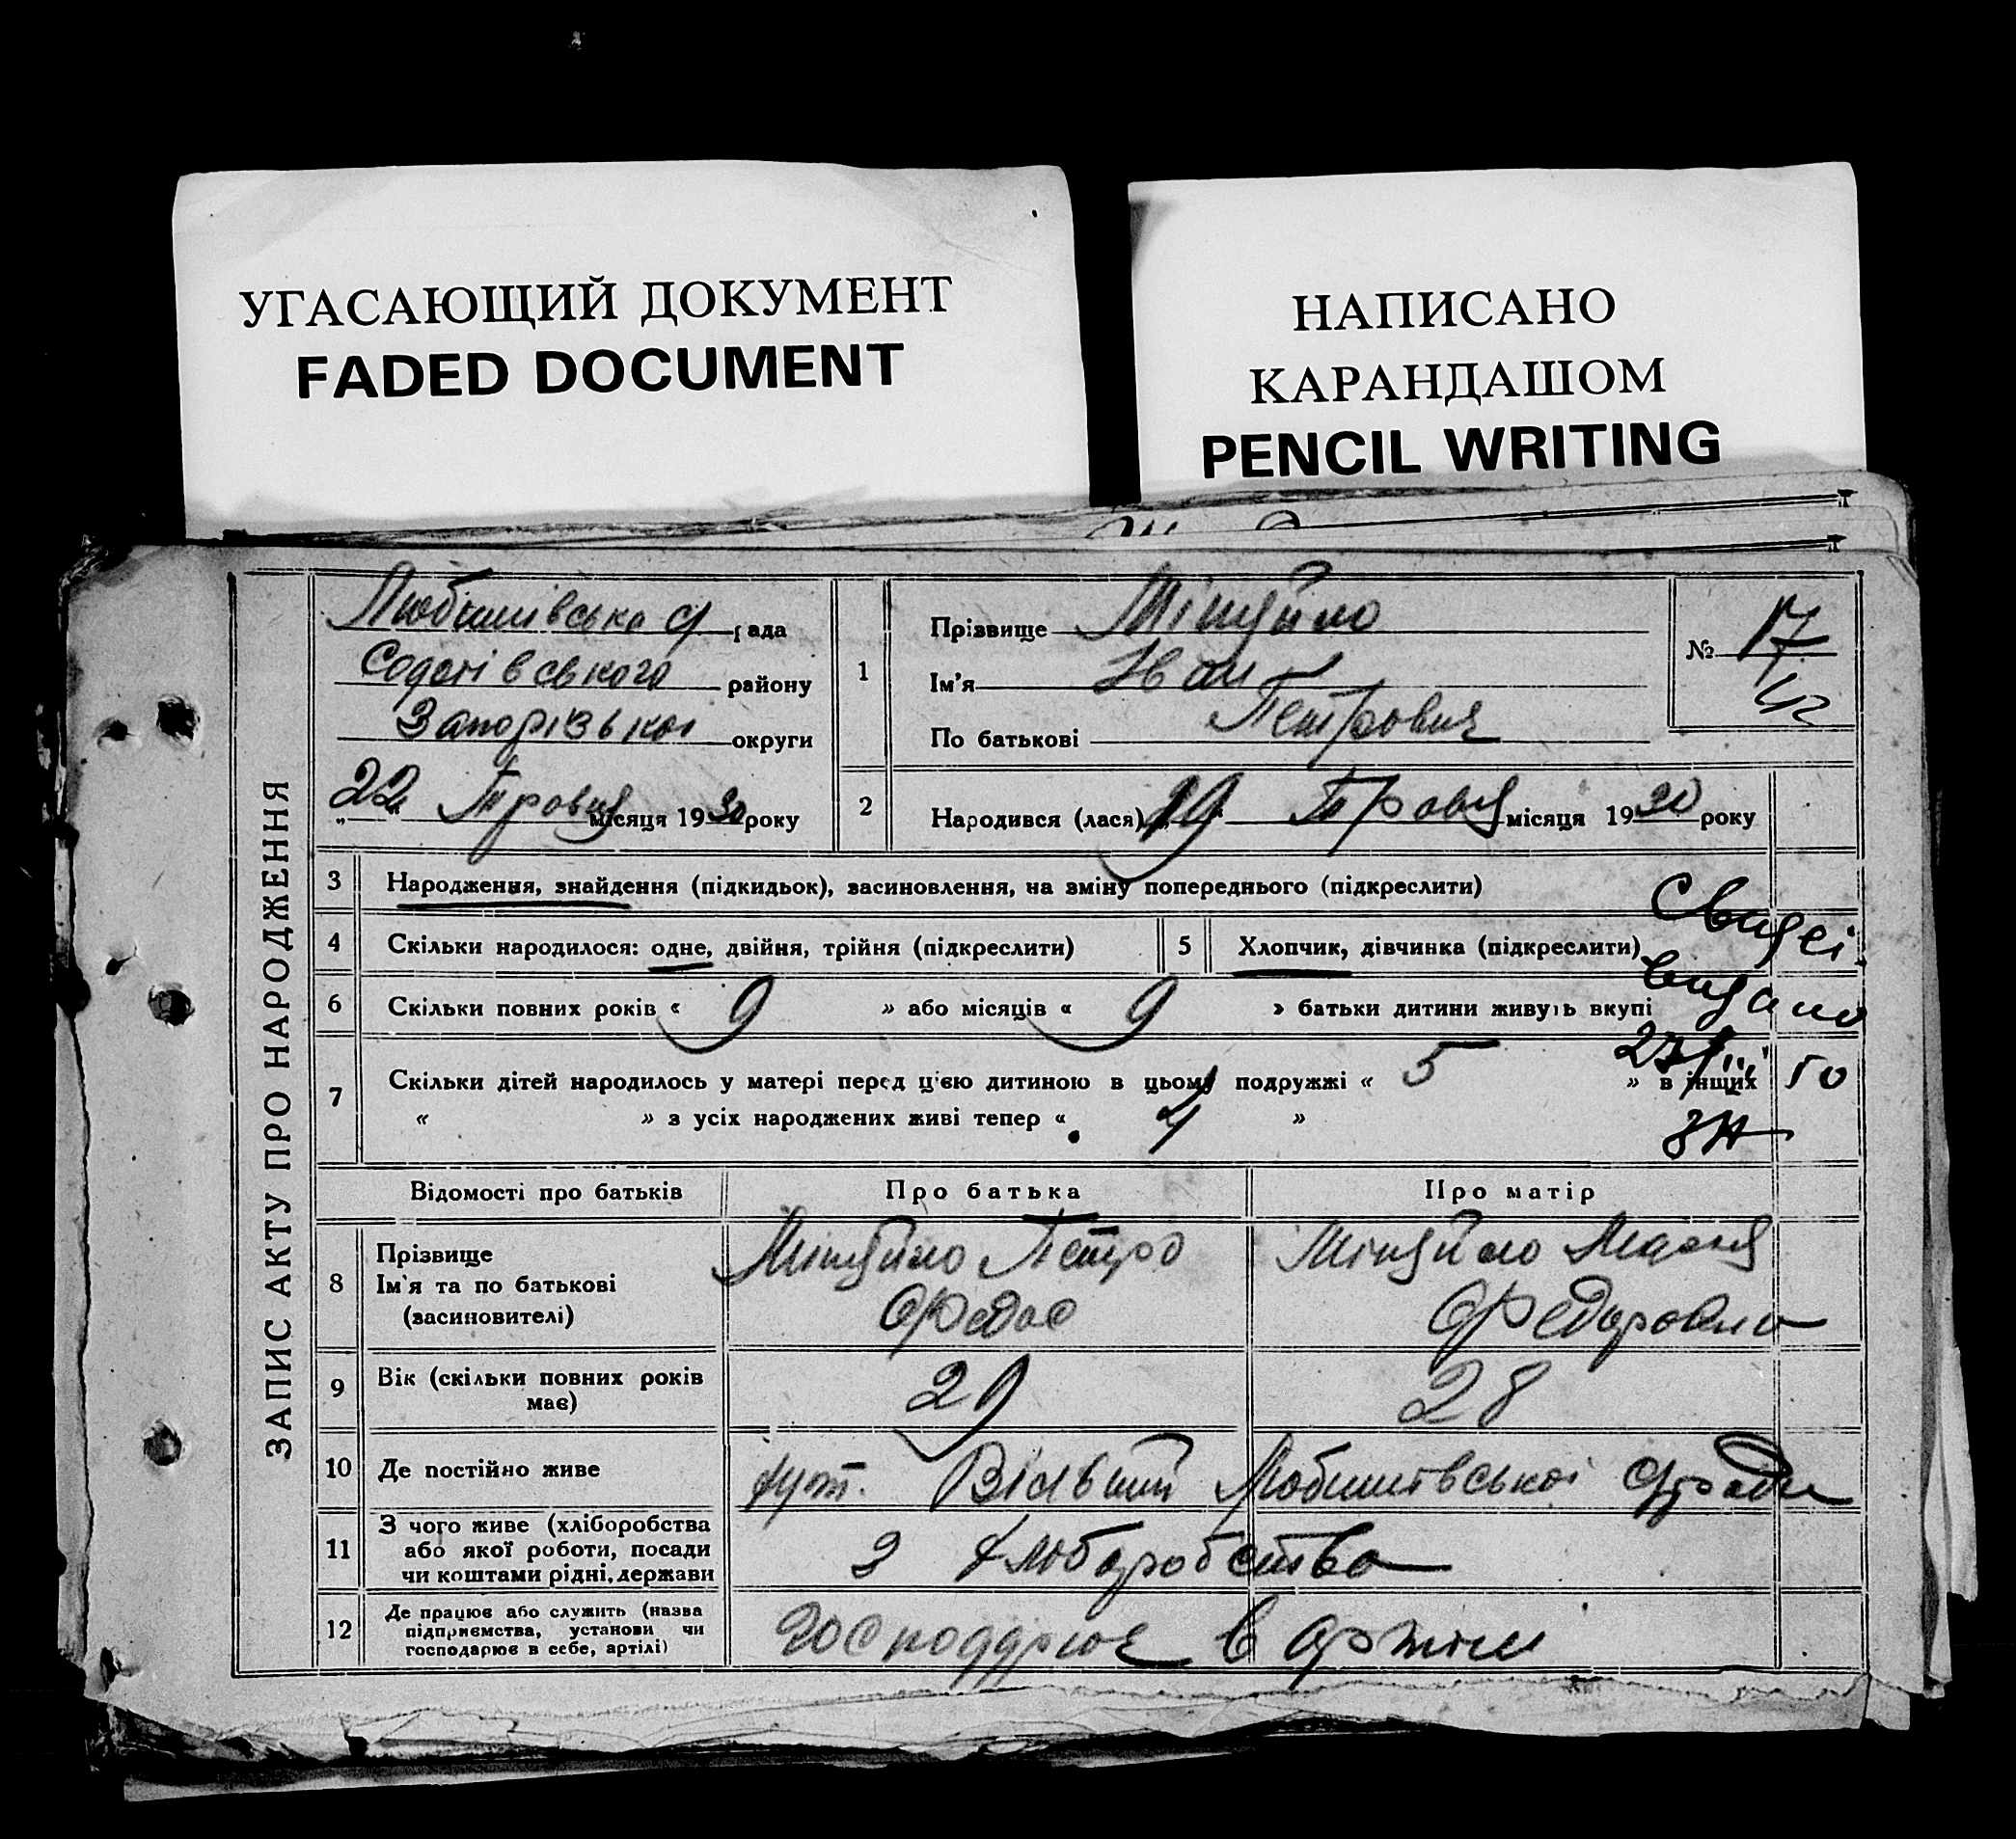 УГАСАЮЩИЙ ДОКУМЕНТ
FADED DOCUMENT
НАПИСАНО
КАРАНДАШОМ
PENCIL WRITING
ЗАПИС АКТУ ПРО НАРОДЖЕННЯ
рада
району
Запорізької округи
"22" Травня місяця 1930 року
1
Прізвище
Ім'я Іван
По батькові Петрович
№ 17
2
Народився (лася) 19 Травня місяця 1930 року
3 Народження, знайдення (підкидьок), засиновлення, на зміну попереднього (підкреслити)
4 Скільки народилося: одне, двійня, трійня (підкреслити)
5 Хлопчик, дівчинка (підкреслити)
6 Скільки повних років « 9 » або місяців « 9 » батьки дитини живуть вкупі
видано
50
7 Скільки дітей народилось у матері перед цією дитиною в цьому подружжі « 5 » в інших
« » з усіх народжених живі тепер « 4 »
Відомості про батьків
Про батька
Про матір
8 Прізвище
Ім'я та по батькові
(засиновителі)
Петро
Федоровна
9 Вік (скільки повних років має)
29
28
10 Де постійно живе
хут. Вільний
11 З чого живе (хліборобства
або якої роботи, посади
чи коштами рідні, держави
з хлоборобства
12 Де працює або служить (назва
підприємства, установи чи
господарює в себе, артілі)
в артілі